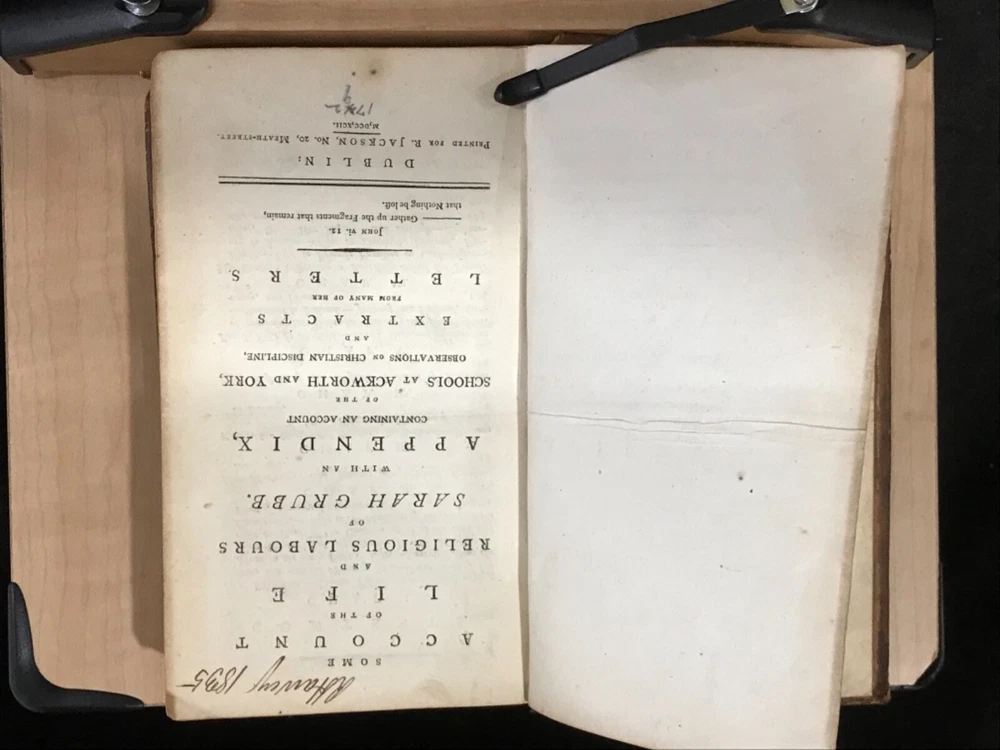 RHarvey 1835
SOME
ACCOUNT
OF THE
LIFE
AND
RELIGIOUS LABOURS
OF
SARAH GRUBB.
WITH AN
APPENDIX,
CONTAINING AN ACCOUNT
OF THE
SCHOOLS AT ACKWORTH AND YORK,
OBSERVATIONS ON CHRISTIAN DISCIPLINE,
AND
EXTRACTS
FROM MANY OF HER
LETTERS.
JOHN vi. 12.
—— Gather up the Fragments that remain,
that Nothing be lost.
DUBLIN:
PRINTED FOR R. JACKSON, No. 20, MEATH-STREET.
M,DCC,XCII.